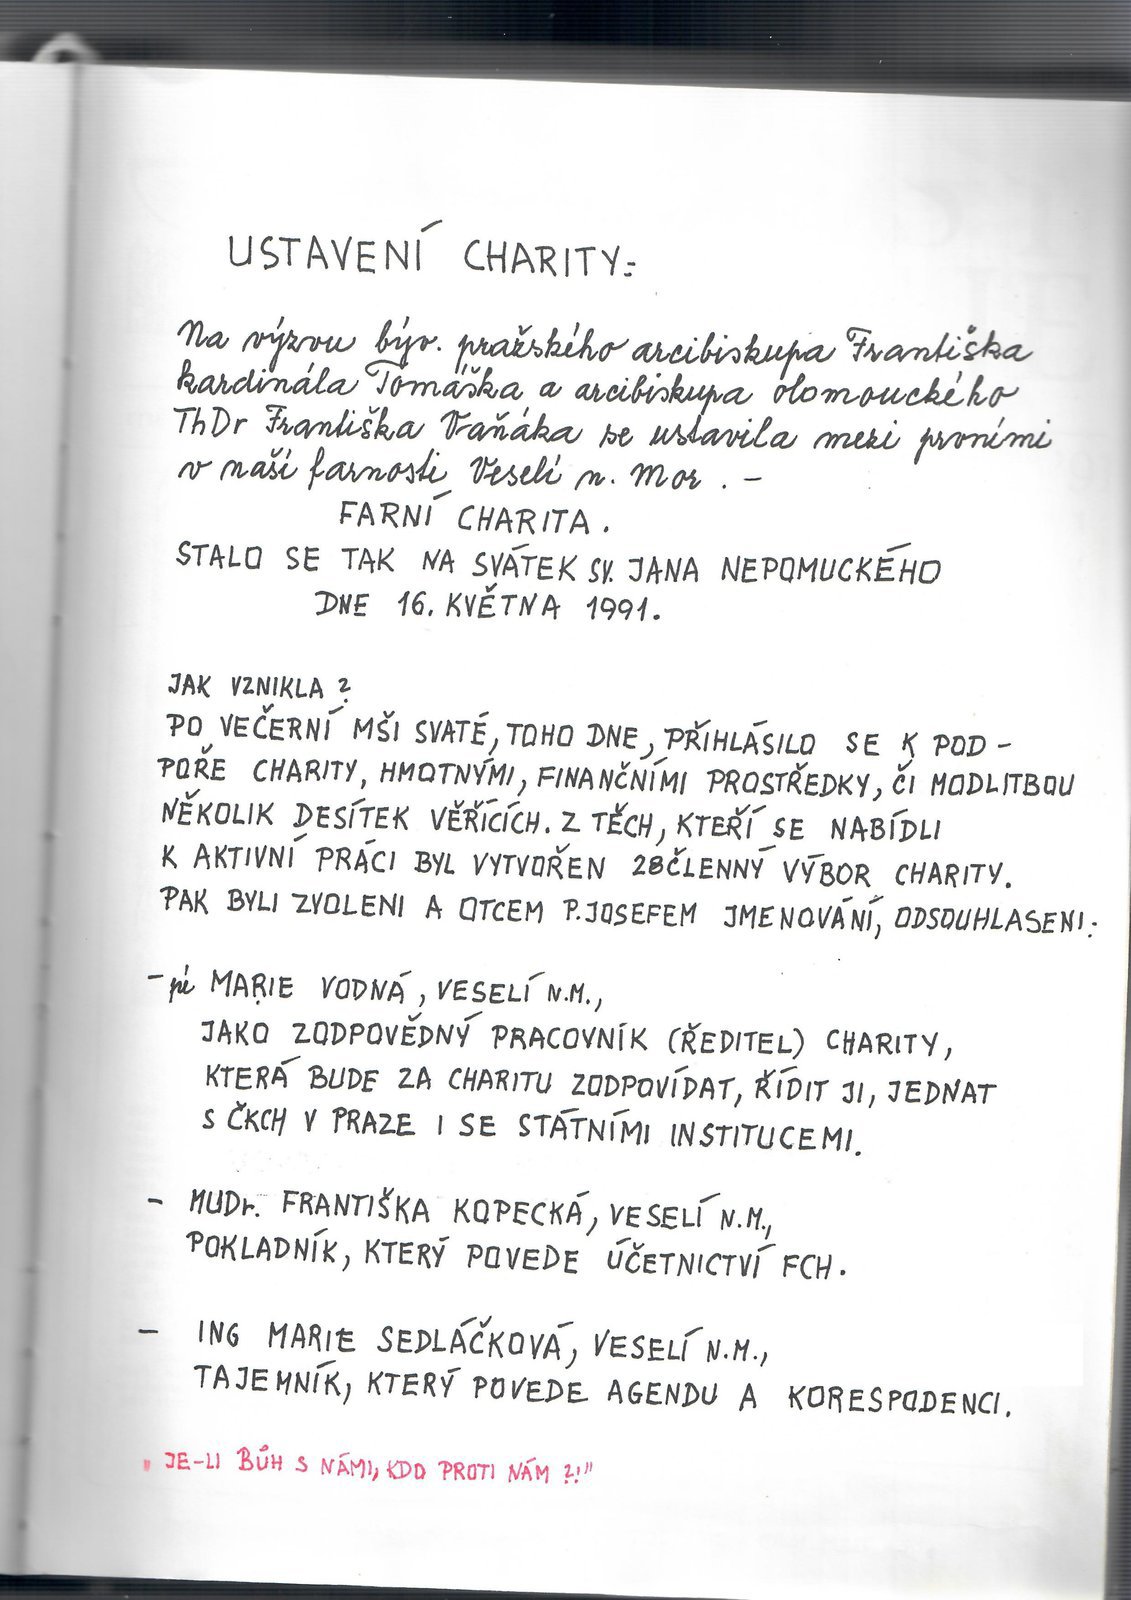 USTAVENÍ CHARITY:
Na výzvu býv. pražského arcibiskupa Františka
kardinála Tomáška a arcibiskupa olomouckého
ThDr Františka Vaňáka se ustavila mezi prvními
v naší farnosti Veselí n. Mor. -
FARNÍ CHARITA.
STALO SE TAK NA SVÁTEK SV. JANA NEPOMUCKÉHO
DNE 16. KVĚTNA 1991.
JAK VZNIKLA?
PO VEČERNÍ MŠI SVATÉ, TOHO DNE, PŘIHLÁSILO SE K POD-
POŘE CHARITY, HMOTNÝMI, FINANČNÍMI PROSTŘEDKY, ČI MODLITBOU
NĚKOLIK DESÍTEK VĚŘÍCÍCH. Z TĚCH, KTEŘÍ SE NABÍDLI
K AKTIVNÍ PRÁCI BYL VYTVOŘEN 28ČLENNÝ VÝBOR CHARITY.
PAK BYLI ZVOLENI A OTCEM P. JOSEFEM JMENOVÁNÍ, ODSOUHLASENI:
- pí MARIE VODNÁ, VESELÍ N.M.,
JAKO ZODPOVĚDNÝ PRACOVNÍK (ŘEDITEL) CHARITY,
KTERÁ BUDE ZA CHARITU ZODPOVÍDAT, ŘÍDIT JI, JEDNAT
S ČKCH V PRAZE I SE STÁTNÍMI INSTITUCEMI.
- MUDr. FRANTIŠKA KOPECKÁ, VESELÍ N.M.,
POKLADNÍK, KTERÝ POVEDE ÚČETNICTVÍ FCH.
- ING MARIE SEDLÁČKOVÁ, VESELÍ N.M.,
TAJEMNÍK, KTERÝ POVEDE AGENDU A KORESPODENCI.
„JE-LI BŮH S NÁMI, KDO PROTI NÁM ?!"